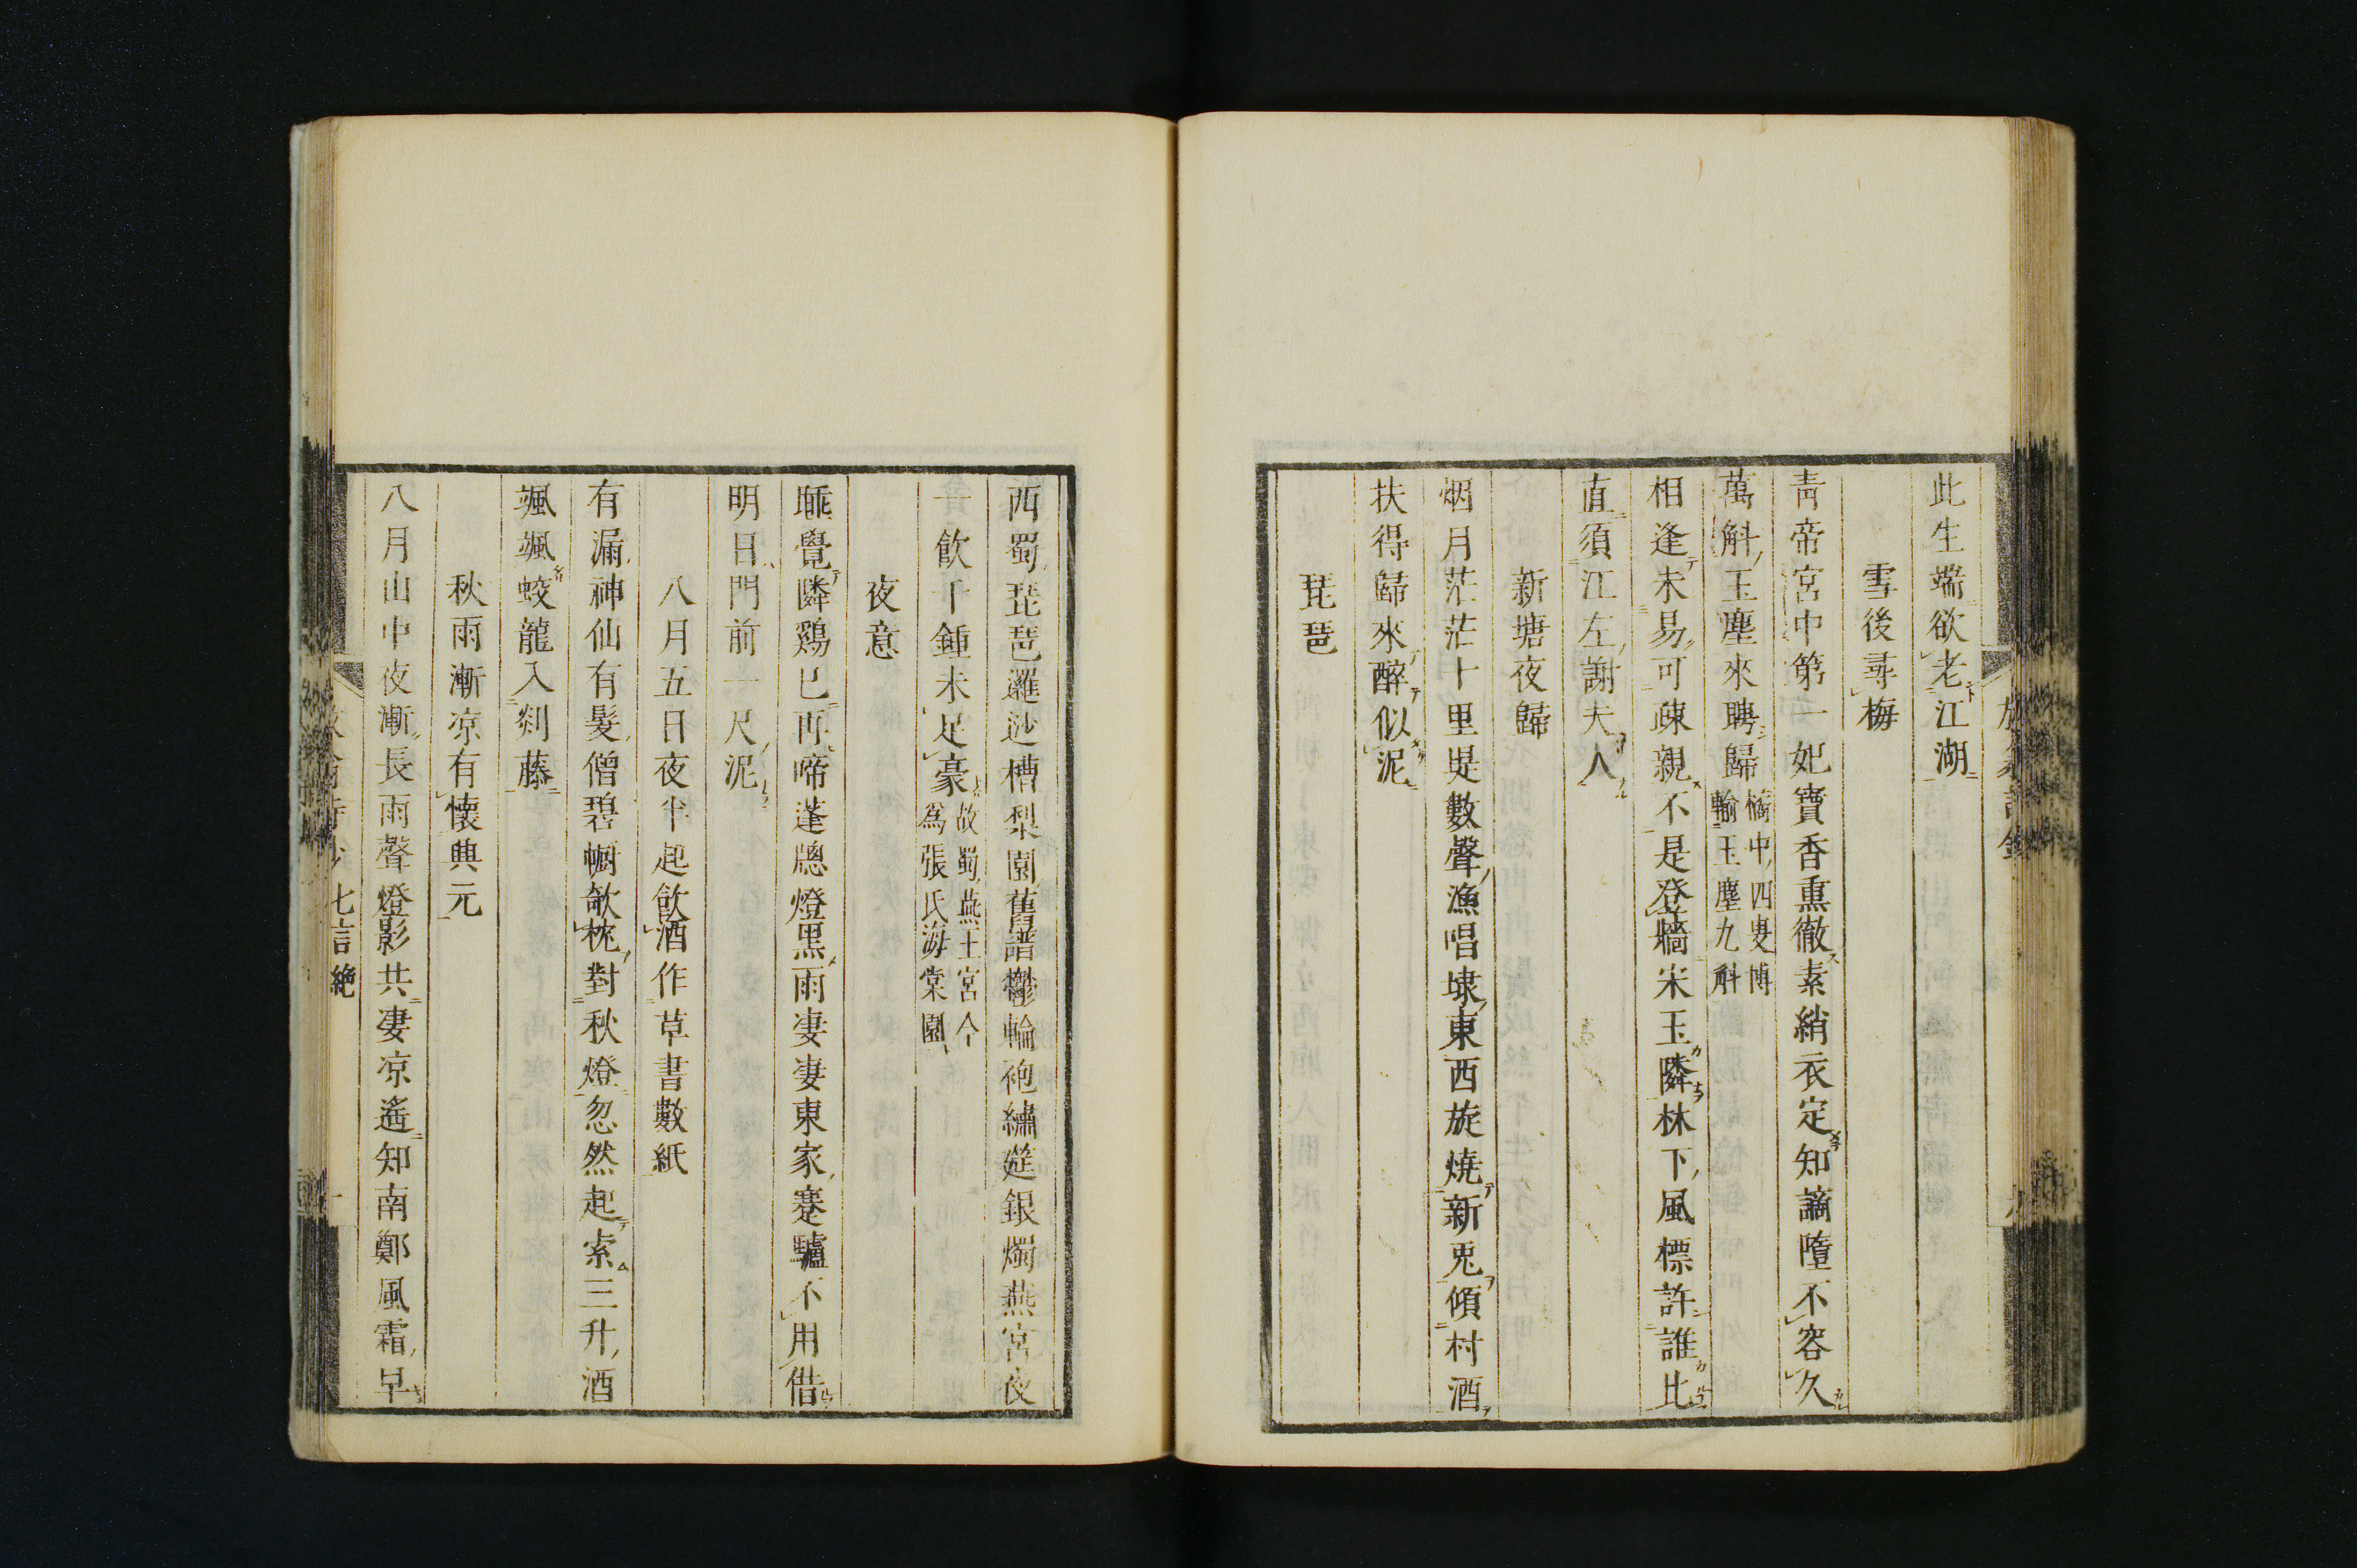 此生端欲老江湖
雪後尋梅
靑帝宮中第一妃寶香熏徹素綃衣定知謫墮不容久
萬斛玉塵來聘歸橘中四叟博
輸玉塵九斛
相逢未易可疎親不是登牆宋玉隣林下風標許誰比
直須江左謝夫人
新塘夜歸
烟月茫茫十里堤數聲漁唱埭東西旋燒新兎傾村酒
扶得歸來醉似泥
琵琶
西蜀琵琶邏逤槽梨園舊譜鬱輪袍繡筵銀燭燕宮夜
一飮千鍾未足豪故蜀燕王宮今
爲張氏海棠園
夜意
睡覺隣鷄已再啼蓬牕燈黑雨凄凄東家蹇驢不用借
明日門前一尺泥
八月五日夜半起飮酒作草書數紙
有漏神仙有髮僧碧幮欹枕對秋燈忽然起索三升酒
颯颯蛟龍入剡藤
秋雨漸凉有懷興元
八月山中夜漸長雨聲燈影共凄凉遙知南鄭風霜早
七言絶